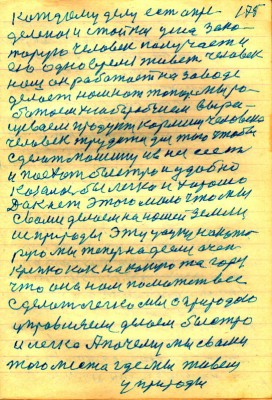 Каждому делу есть опре- 175
деленая и стойкая цена зако-
торую человек получает и
его одно время живет человек
наш он работает на заводе
делает
работаем на
щиваем продукты кормим человека
человек трудется для того чтобы
сделат машину и в ней сесть
и поехат быстро и удобно
Казалос бы легко и хорошо
Дак нет этого мало что мы
с вами делаем на нашей земли
и природы Эту науку накото
рую мы теперь надеемся
крепко как на какую то гору
что она нам поможет все
сделат легко мы с природою
управляем делаем быстро
и легко А почему мы с вами
того места где мы живем
у природы